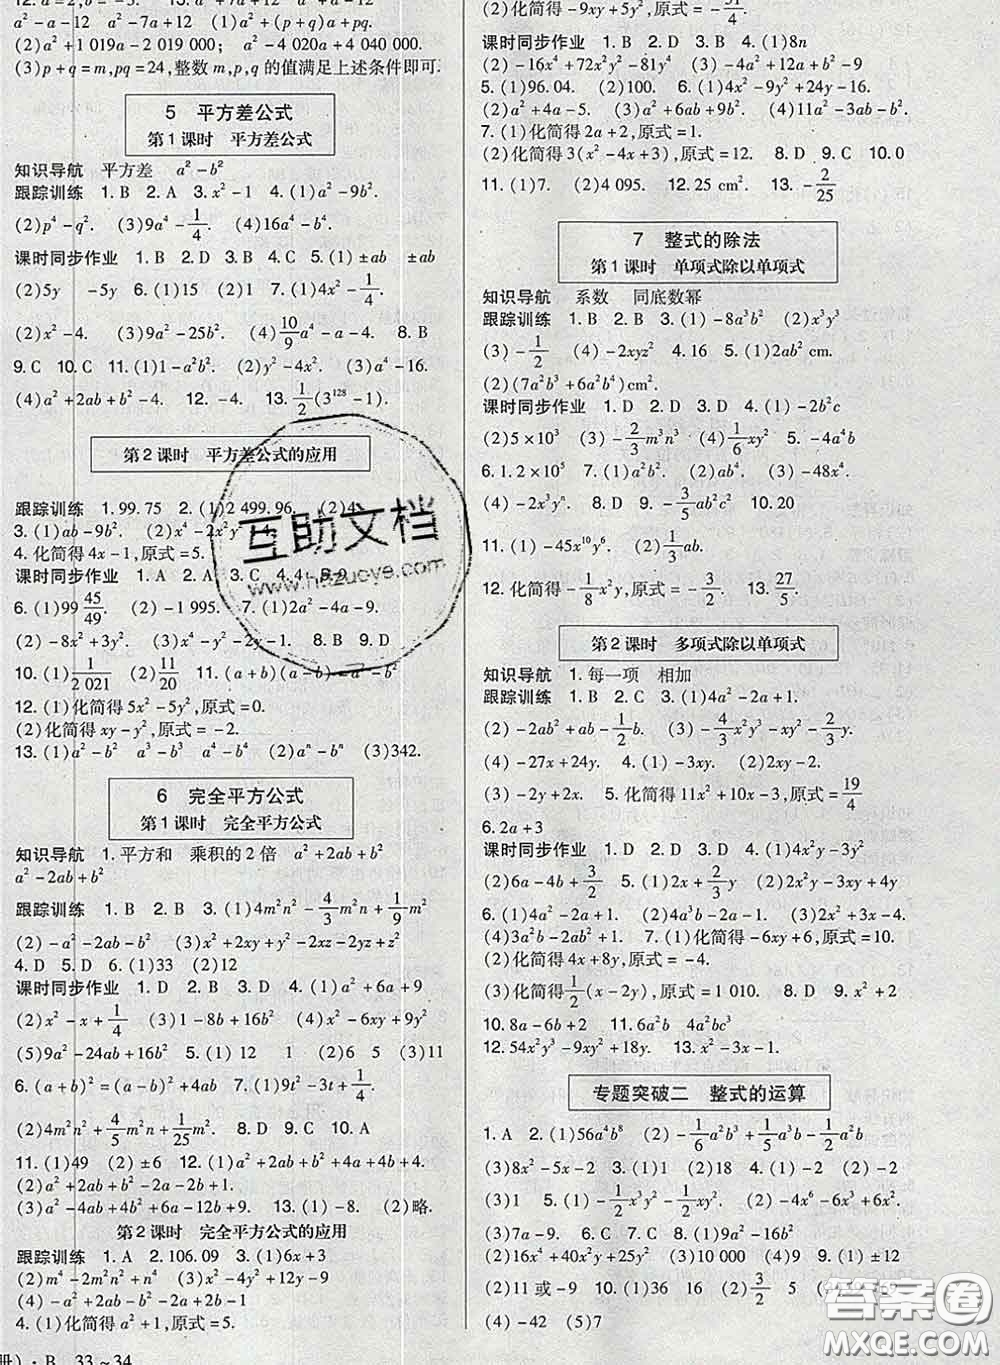 12. a=2,b=-3. 13. a²+7a+12 a²+a-12
a²-a-12 a²-7a+12 (1)(p+q)a+pq
(2)a²+1 019a-2 019 000; a²-4 020a+4 040 000.
(3)p+q=m,pq=24,整数m,p,q的值满足上述条件即可.
5 平方差公式
第1课时 平方差公式
知识导航 平方差 a²-b²
跟踪训练 1. B 2. A 3. x²-1 4. (1)a²-9b².
(2)p⁴-q². (3)9a⁴-1/4. (4)16a⁴-b⁴.
课时同步作业 1. B 2. D 3. B 4. C 5. (1)±ab ±ab
(2)5y -5y 6. (1)15 (2)1 7. (1)4x²-1/4.
(2)x²-4. (3)9a²-25b². (4)10/9a⁴-a-4. 8. C
9. C 10. C 11. (1)1-a²b². (2)9a²-4. (3)a⁴-16.
(4)a²+2ab+b²-4. 12. -4. 13. 1/2(3¹²⁸-1).
第2课时 平方差公式的应用
跟踪训练 1. 99.75 2. (1)2 499.96. (2)4.
3. (1)ab-9b². (2)x⁴-2x²y²
4. 化简得4x-1,原式=5.
课时同步作业 1. A 2. A 3. C 4. 4
6. (1)99 45/49. (2)-1 995. 7. (1)2a²-4a-9.
(2)-8x²+3y². (3)x⁴-y²-2x-1. 8. B 9. D
10. (1)1/2 021 (2)11/20 11. (a+b)(a-b)
12. (1)化简得5x²-5y²,原式=0.
(2)化简得xy-y²,原式=-2.
13. (1)a²-b² a³-b³ a⁴-b⁴ (2)aⁿ-bⁿ (3)342.
6 完全平方公式
第1课时 完全平方公式
知识导航 1. 平方和 乘积的2倍 a²+2ab+b²
a²-2ab+b²
跟踪训练 1. B 2. B 3. (1)4m²n²-4/3m²n+1/9m²
(2)-a²-2ab-b² (3)x²+2xy+y²-2xz-2yz+z²
4. D 5. D 6. (1)33 (2)12
课时同步作业 1. D 2. D 3. B 4. (1)a²+6a+9
(2)x²-x+1/4 (3)1-8b+16b² (4)x²-6xy+9y²
(5)9a²-24ab+16b² 5. (1)12 1 (2)6 5 (3)11
6. (a+b)²=(a-b)²+4ab 7. (1)9t²-3t+1/4.
(2)4m²n²+4/5m²n+1/25m². 8. B 9. C 10. A
11. (1)49 (2)±6 12. (1)a²+b²+1-2ab+4a-4b+4.
(2)a²+2ab+b²-1.
(3)4a²-9b²-4a-12b+9. 13. (1)= (2)略.
第2课时 完全平方公式的应用
跟踪训练 1. A 2. 106.09 3. (1)6x+3
(2)m⁴-2m²n²+n⁴ (3)4x²-12xy+9y²-16
(4)-a²+2ab-2b²
4. (1)化简得a²+1,原式=5.
册)·B 33~34
(2)化简得-9xy+5y²,原式=-31/4.
课时同步作业 1. B 2. D 3. A 4. (1)8n
(2)-16x⁴+72x²y²-81y⁴ (3)-4a²+12ab+b²-9
5. (1)96.04. (2)200. 6. (1)4x²-9y²+24y-16.
(2)a²+4a-5. (3)a²+6ab+9b² (4)2a²-3ab-b².
7. (1)化简得2a+2,原式=1.
(2)化简得3(x²-4x+3),原式=12. 8. D 9. C 10. 0
11. (1)7. (2)4 095. 12. 25 cm². 13. -2/25
7 整式的除法
第1课时 单项式除以单项式
知识导航 系数 同底数幂
跟踪训练 1. B 2. B 3. (1)-8a³b² (2)x³y³
(3)-1/2 (4)-2xyz² 4. 16 5. (1)2ab² cm.
(2)(7a²b³+6a²b²) cm².
课时同步作业 1. D 2. D 3. D 4. (1)-2b²c
(2)5×10³ (3)-2/3m³n³ (4)1/6xy² 5. -4a⁵b
6. 1.2×10⁵ 7. (1)-4x². (2)-xy. (3)-48x⁴.
(4)-2x²y³. 8. D 9. -3/5ab²c² 10. 20
11. (1)-45x¹⁰y⁶. (2)1/3ab.
12. 化简得-1/8x²y,原式=3/2. 13. 27/5.
第2课时 多项式除以单项式
知识导航 1. 每一项 相加
跟踪训练 1. B 2. C 3. (1)4a²-2a+1.
(2)-2ab²+ab-1/2b. (3)-4/3x²y³-1/2xy-2/3y.
(4)-27x+24y. 4. (1)-3xy. (2)5x²+2x.
(3)-2y+2x. 5. 化简得11x²+10x-3,原式=19/4
6. 2a+3
课时同步作业 1. D 2. D 3. D 4. (1)4x²y-3y²
(2)6a-4b (3)-1/2a+b 5. (1)2x+2/3y (2)2x+2/3y
6. (1)4a²-2a+1. (2)-8a²+4ab-1. (3)2x²+3x-4.
(4)3a²b-2ab²+1. 7. (1)化简得-6xy+6,原式=10.
(2)化简得4x+8y,原式=-4.
(3)化简得1/2(x-2y),原式=1 010. 8. D 9. x²+2
10. 8a-6b+2 11. 6a²bc 4a²bc²
12. 54x²y³-9xy²+18y. 13. x²-3x.
专题突破二 整式的运算
1. A 2. (1)56a⁴b⁸ (2)-1/6a³b²+1/5a²b-1/2a²b
(3)8x²-5x-2 3. (1)1 (2)-15 4. (1)1 (2)4
(3)1 5. (1)-1/2x³y²-1/2xy². (2)-5x⁷+6x⁶+6x⁵.
(3)7a-9. 6. C 7. C 8. C 9. (1)±12
(2)16x²+40xy+25y² (3)-1
(2)11或-9 10. (1)36 16 (2)3/2 5 (3)
(4)-42 (5)7
互助文档
www.hszuoye.com
答案圈
MXQE.COM